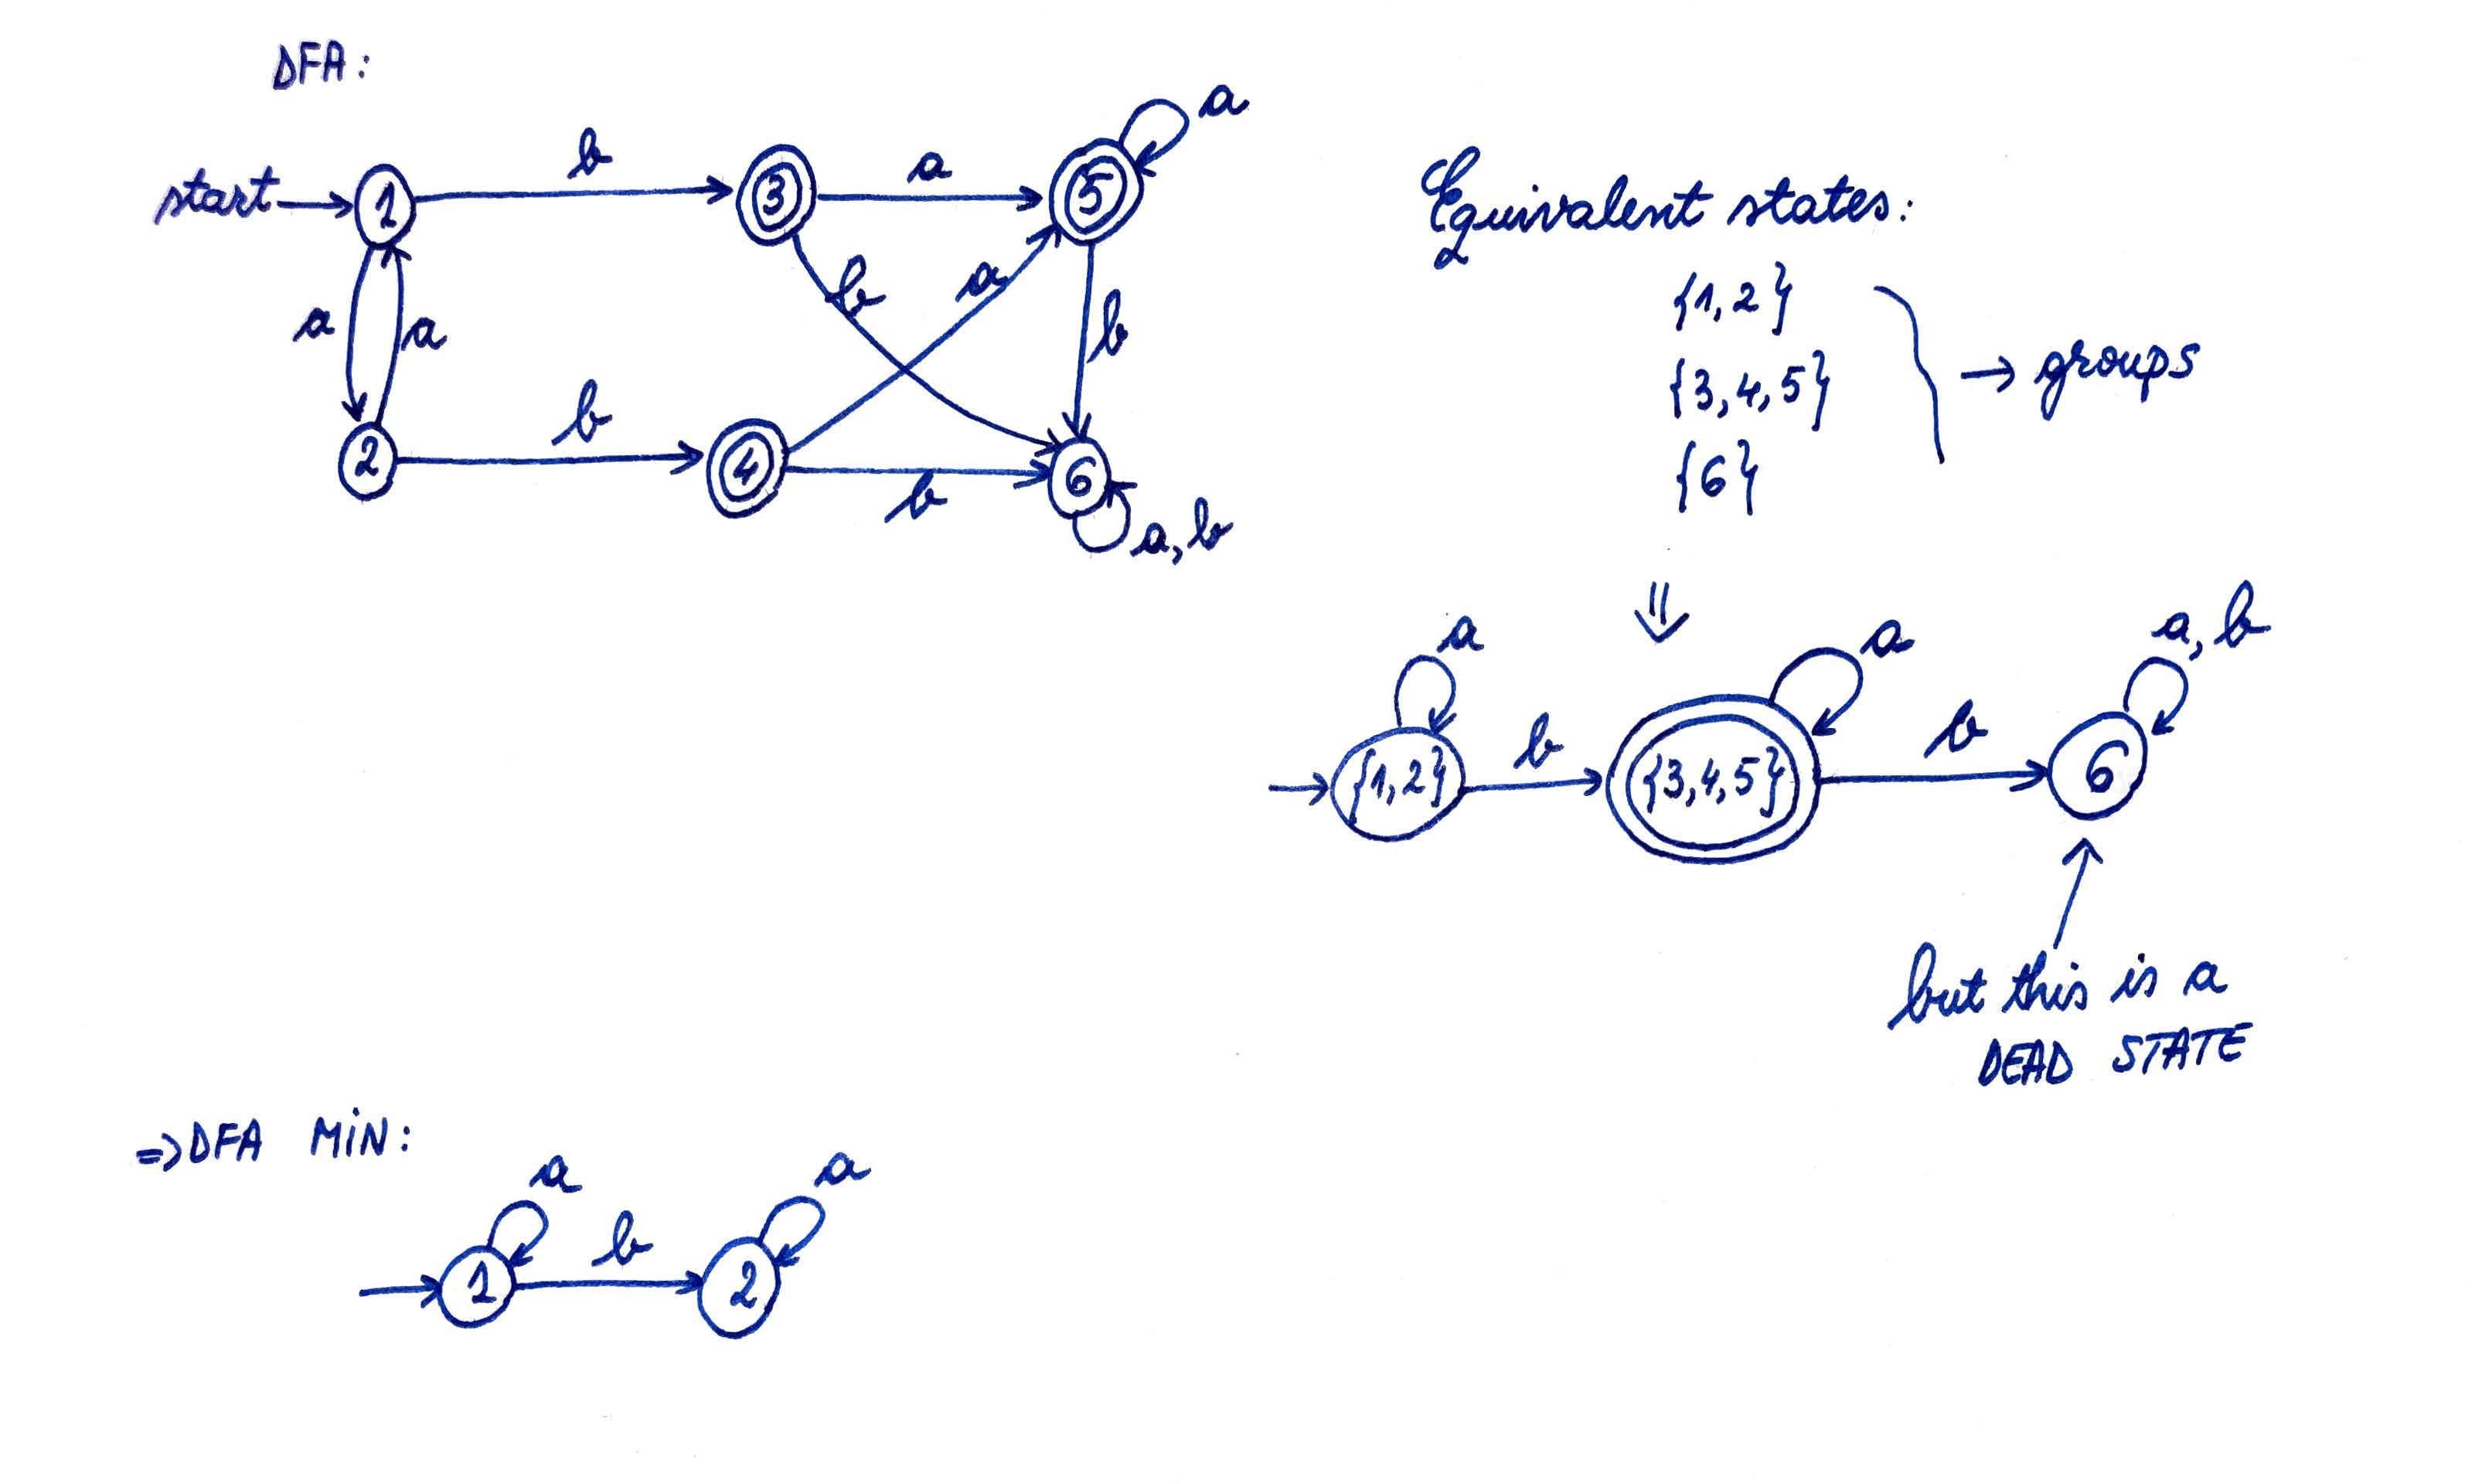 DFA:
start 1 b 3 a 5 a
a a b a b
2 b 4 b 6 a, b
Equivalent states:
{1, 2}
{3, 4, 5} → groups
{6}
⇓
a a a, b
{1, 2} b {3, 4, 5} b 6
but this is a
DEAD STATE
⇒ DFA MiN:
a a
1 b 2